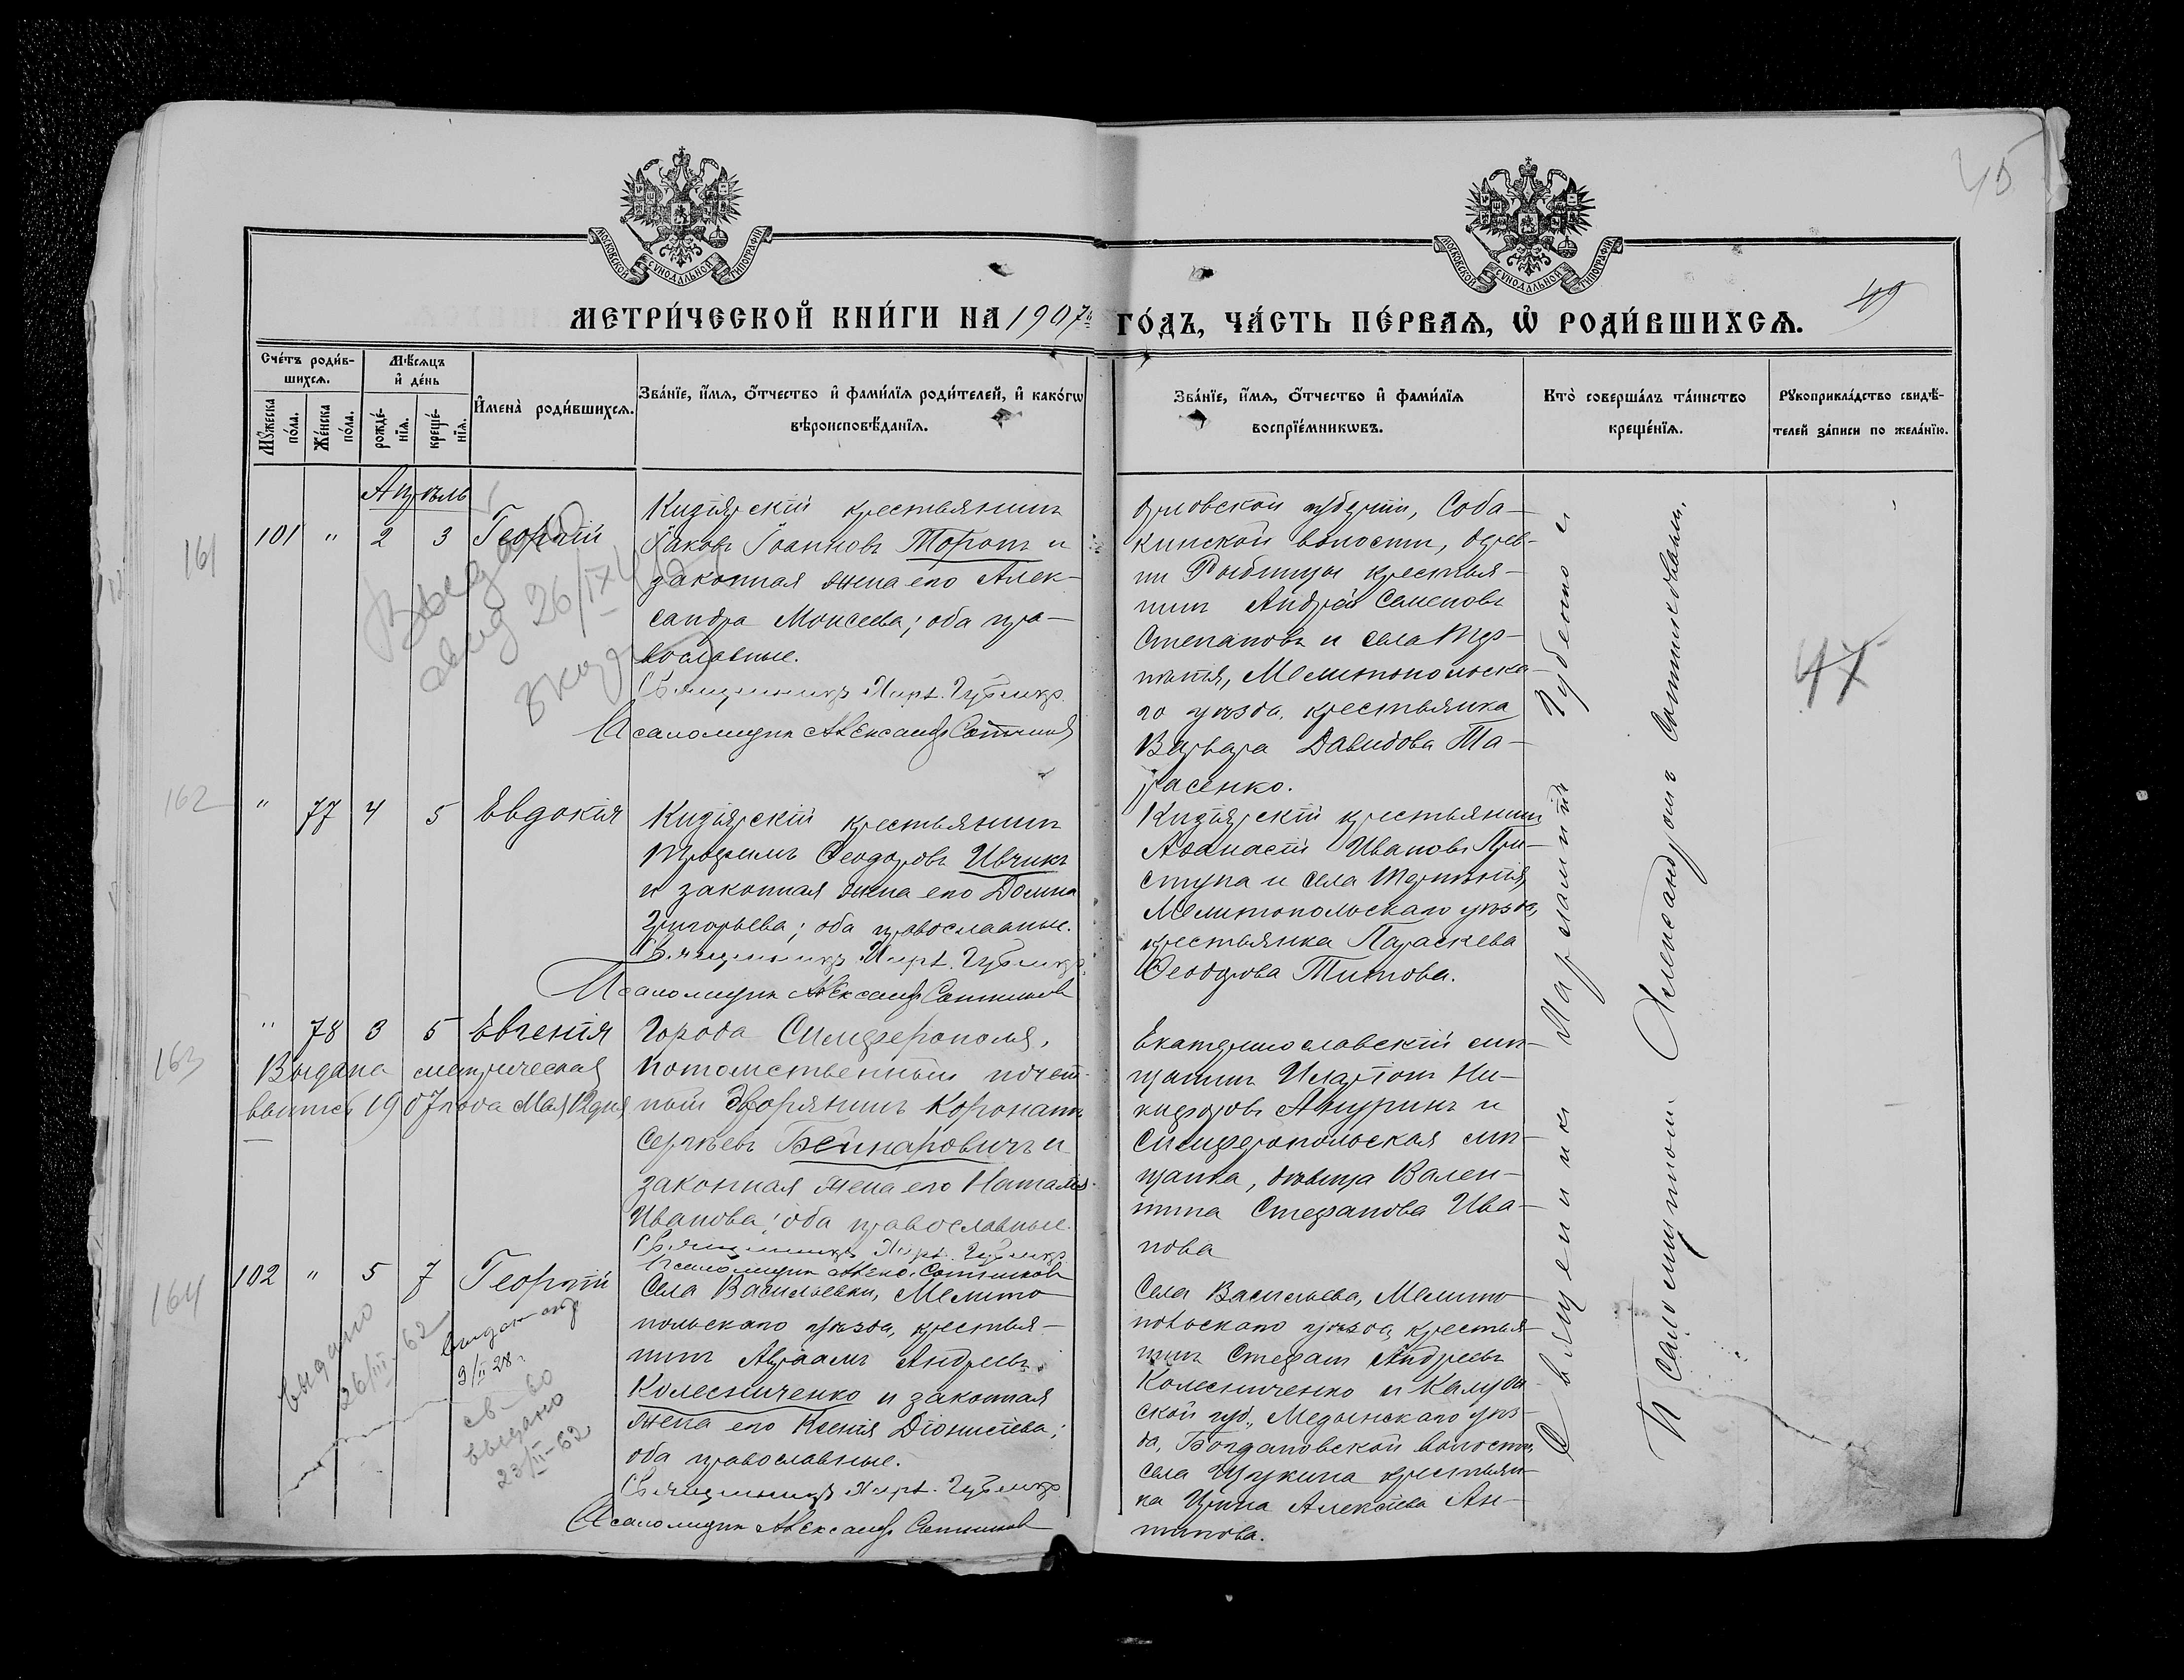 45
49
МОСКОВСКОЙ СѴНОДАЛЬНОЙ ТИПОГРАФІИ
МОСКОВСКОЙ СѴНОДАЛЬНОЙ ТИПОГРАФІИ
МЕТРИ́ЧЕСКОЙ КНИ́ГИ НА 1907й ГО́ДЪ, ЧА́СТЬ ПЕ́РВАѦ, Ѡ҆ РОДИ́ВШИХСѦ.
Сче́тъ роди́в-
шихсѧ.
Мѹ́жеска по́ла.
Же́нска по́ла.
Мѣ́сѧцъ
и҆ де́нь
рожде́-
нїѧ.
креще́-
нїѧ.
И҆мена̀ роди́вшихсѧ.
Зва́нїе, и҆́мѧ, ѻ҆́тчество и҆ фами́лїѧ роди́телей, и҆ како́гѡ
вѣроисповѣ́данїѧ.
Зва́нїе, и҆́мѧ, ѻ҆́тчество и҆ фами́лїѧ
воспрїе́мникѡвъ.
Кто̀ соверша́лъ та́инство
креще́нїѧ.
Рѹкоприкла́дство свидѣ́-
телей за́писи по жела́нїю.
Апрѣль
161
101 " 2 3 Георгій
Выдано
26/IX
Кизіярскій крестьянинъ
Іаковъ Іоанновъ Торопъ и
законная жена его Алек-
сандра Моисеева; оба пра-
вославные.
Священникъ Марк. Губенко
Псаломщикъ Александръ Сотников
Орловской губерніи, Соба-
кинской волости, дерев-
ни Рыбницы крестья-
нинъ Андрей Семеновъ
Степановъ и села Тер-
пѣнія, Мелитопольска-
го уѣзда, крестьянка
Варвара Давидова Та-
расенко.
47
162
" 77 4 5 Евдокія
Кизіярскій крестьянинъ
Трофимъ Ѳеодоровъ Ивчикъ
и законная жена его Домна
Григорьева; оба православные.
Священникъ Марк. Губенко
Псаломщикъ Александръ Сотников
Кизіярскій крестьянинъ
Аѳанасій Ивановъ При-
ступа и села Терпѣнія,
Мелитопольскаго уѣзда,
крестьянка Параскева
Ѳеодорова Титова.
163
" 78 3 5 Евгенія
Выдана метрическая
выпись 1907 года Мая
Города Симферополя,
потомственный почет-
ный дворянинъ Коронатъ
Сергѣевъ Бейнаровичъ и
законная жена его Наталія
Иванова; оба православные.
Священникъ Марк. Губенко
Псаломщикъ Алекс. Сотников
Екатеринославскій мѣ-
щанинъ Иларіонъ Ни-
кифоровъ Апуринъ и
Симферопольская мѣ-
щанка, дѣвица Вален-
тина Стефанова Ива-
нова
164
102 " 5 7 Георгій
выдано
26/III-62
9/II 28 г.
св-во
выдано
23/II-62
Села Васильевки, Мелито-
польскаго уѣзда, крестья-
нинъ Авраамъ Андреевъ
Колесниченко и законная
жена его Ксенія Діонисіева;
оба православные.
Священникъ Марк. Губенко
Псаломщикъ Александръ Сотников
Села Васильева, Мелито-
польскаго уѣзда, крестья-
нинъ Стефанъ Андреевъ
Колесниченко и Калуж-
ской губ., Медынскаго уѣз-
да, Богдановской волости,
села Щукина крестьян-
ка Ирина Алексѣева Ан-
типова.
Священникъ Губенко и
Псаломщикъ Александръ Сотниковъ.